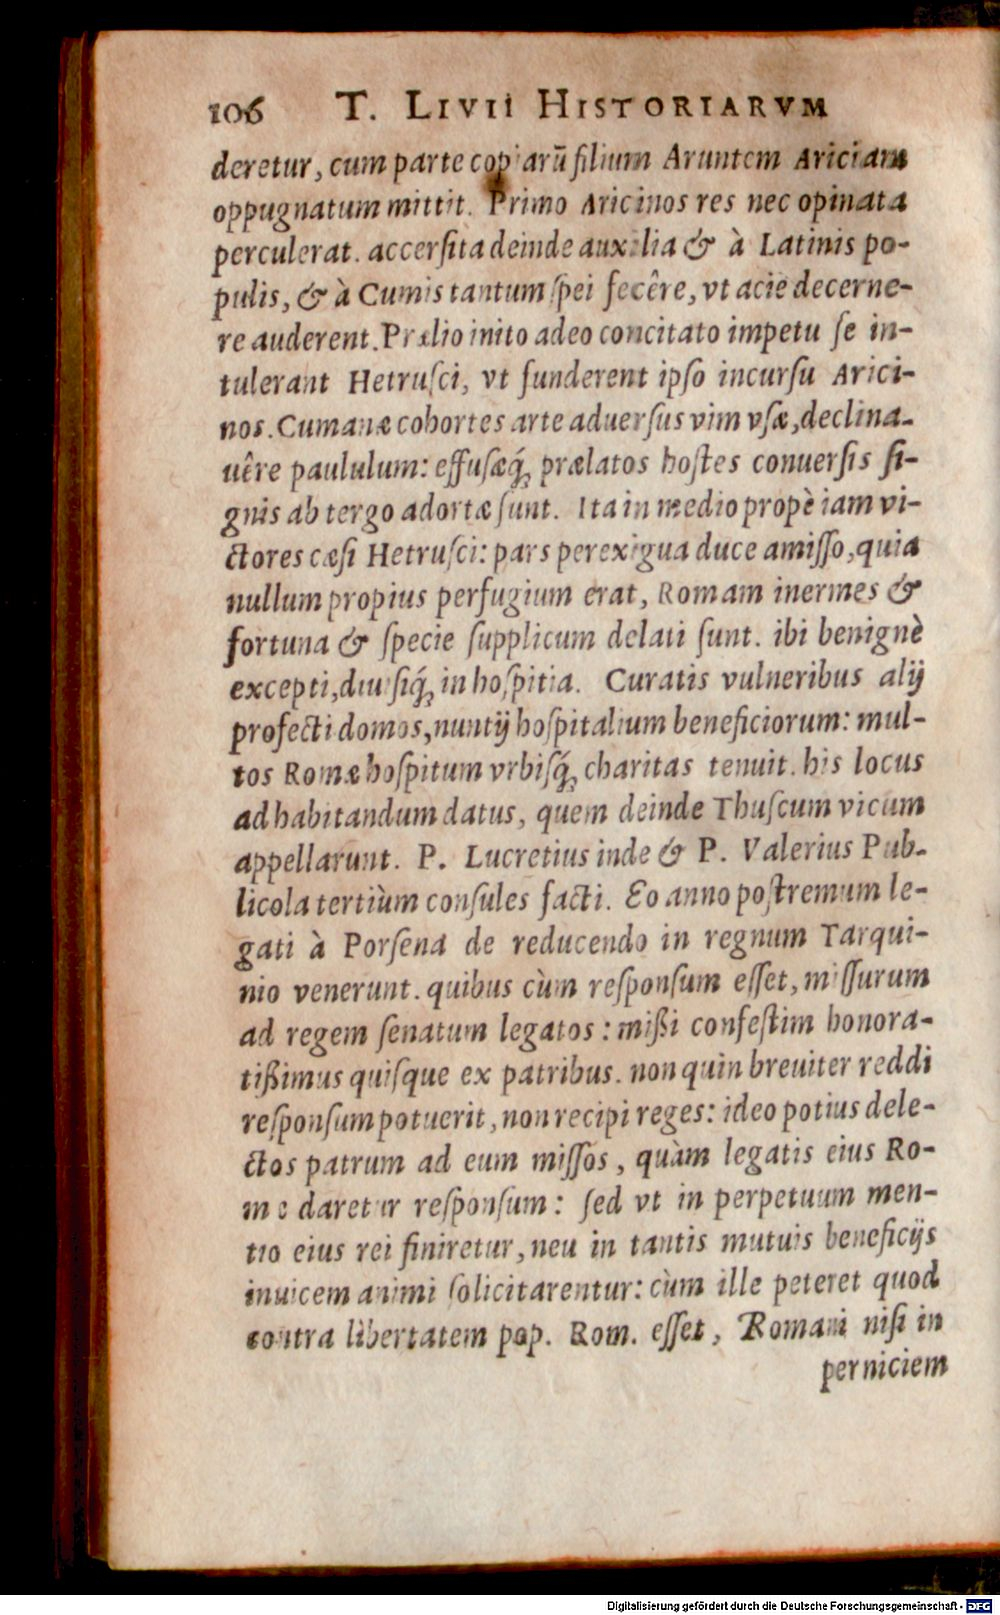 106 T. LIVII HISTORIARVM
deretur, cum parte copiarũ filium Aruntem Ariciam
oppugnatum mittit. Primo Aricinos res nec opinata
perculerat. accerſita deinde auxilia & à Latinis po-
pulis, & à Cumis tantum ſpei fecêre, vt acie decerne-
re auderent. Prælio inito adeo concitato impetu ſe in-
tulerant Hetruſci, vt funderent ipſo incurſu Arici-
nos. Cumanæ cohortes arte aduerſus vim vſæ, declina-
uêre paululum: effuſæq́; prælatos hoſtes conuerſis ſi-
gnis ab tergo adortæ ſunt. Ita in medio propè iam vi-
ctores cæſi Hetruſci: pars perexigua duce amiſſo, quia
nullum propius perfugium erat, Romam inermes &
fortuna & ſpecie ſupplicum delati ſunt. ibi benignè
excepti, diuiſiq́; in hoſpitia. Curatis vulneribus alij
profecti domos, nuntij hoſpitalium beneficiorum: mul-
tos Romæ hoſpitum vrbiſq́; charitas tenuit. his locus
ad habitandum datus, quem deinde Thuſcum vicum
appellarunt. P. Lucretius inde & P. Valerius Pub-
licola tertiùm conſules facti. Eo anno poſtremum le-
gati à Porſena de reducendo in regnum Tarqui-
nio venerunt. quibus cùm reſponſum eſſet, miſſurum
ad regem ſenatum legatos: mißi confeſtim honora-
tißimus quiſque ex patribus. non quin breuiter reddi
reſponſum potuerit, non recipi reges: ideo potius dele-
ctos patrum ad eum miſſos, quàm legatis eius Ro-
mæ daretur reſponſum: ſed vt in perpetuum men-
tio eius rei finiretur, neu in tantis mutuis beneficijs
inuicem animi ſolicitarentur: cùm ille peteret quod
contra libertatem pop. Rom. eſſet, Romani niſi in
perniciem
Digitalisierung gefördert durch die Deutsche Forschungsgemeinschaft - DFG